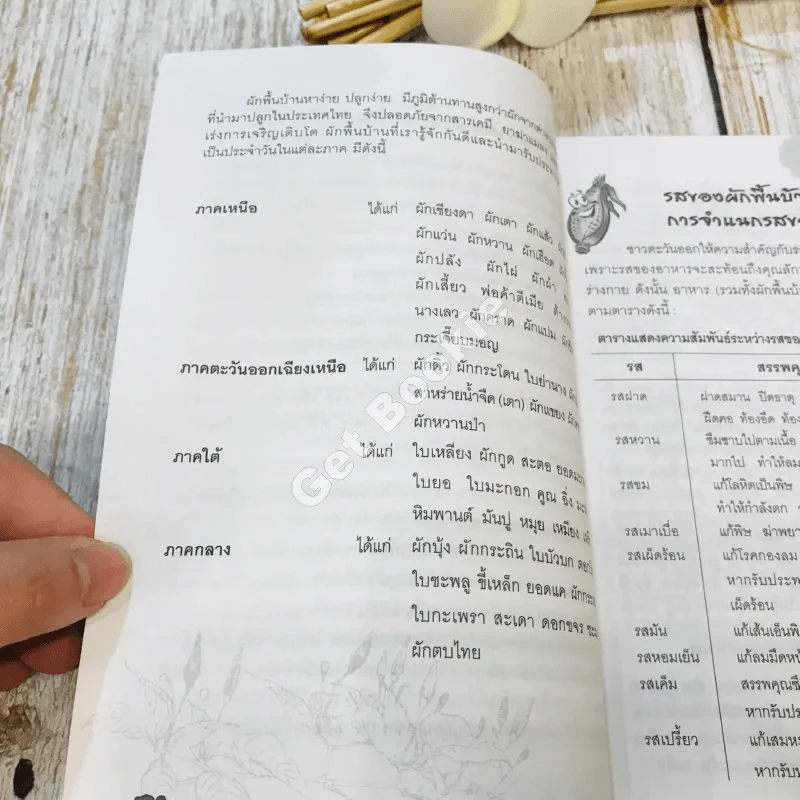 ผักพื้นบ้านหาง่าย ปลูกง่าย มีภูมิต้านทานสูงกว่าผักจาก
ที่นำมาปลูกในประเทศไทย จึงปลอดภัยจากสารเคมี ยาฆ่าแมลง
เร่งการเจริญเติบโต ผักพื้นบ้านที่เรารู้จักกันดีและนำมารับประ
เป็นประจำวันในแต่ละภาค มีดังนี้
ภาคเหนือ ได้แก่ ผักเชียงดา ผักเตา ผักแส้ว
ผักแว่น ผักหวาน ผักเฮือด
ผักปลัง ผักไผ่ ผักผำ
ผักเสี้ยว พ่อค้าตีเมีย
นางเลว ผักคราด ผักแปม
กระเจี๊ยบมอญ
ภาคตะวันออกเฉียงเหนือ ได้แก่ ผักติ้ว ผักกระโดน ใบย่านาง
สาหร่ายน้ำจืด (เตา) ผักแขยง
ผักหวานป่า
ภาคใต้ ได้แก่ ใบเหลียง ผักกูด สะตอ ยอดมะ
ใบยอ ใบมะกอก คูณ ฉิ่ง
หิมพานต์ มันปู หมุย เหมียง
ภาคกลาง ได้แก่ ผักบุ้ง ผักกระถิน ใบบัวบก
ใบชะพลู ขี้เหล็ก ยอดแค
ใบกะเพรา สะเดา ดอกขจร
ผักตบไทย
รสของผักพื้นบ้า
การจำแนกรสข
ชาวตะวันออกให้ความสำคัญกับร
เพราะรสของอาหารจะสะท้อนถึงคุณลัก
ร่างกาย ดังนั้น อาหาร (รวมทั้งผักพื้นบ้
ตามตารางดังนี้ :
ตารางแสดงความสัมพันธ์ระหว่างรสขอ
รส สรรพคุ
รสฝาด ฝาดสมาน ปิดธาตุ
ฝืดคอ ท้องอืด ท้อง
รสหวาน ซึมซาบไปตามเนื้อ
มากไป ทำให้ลม
รสขม แก้โลหิตเป็นพิษ
ทำให้กำลังตก
รสเมาเบื่อ แก้พิษ ฆ่าพยา
รสเผ็ดร้อน แก้โรคกองลม
หากรับประท
เผ็ดร้อน
รสมัน แก้เส้นเอ็นพิ
รสหอมเย็น แก้ลมมืดหน้
รสเค็ม สรรพคุณซึ
หากรับปร
รสเปรี้ยว แก้เสมห
หากรับป
Get Bookie